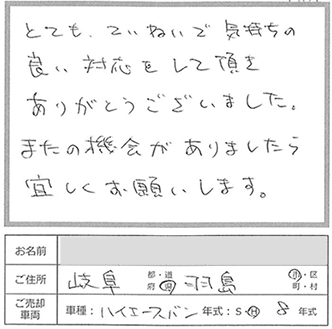 とても、ていねいで気持ちの
良い対応をして頂き
ありがとうございました。
またの機会がありましたら
宜しくお願いします。
お名前
ご住所 岐阜 都・道 府・県 羽島 市・区 町・村
ご売却車両 車種：ハイエースバン 年式：S・H 8 年式